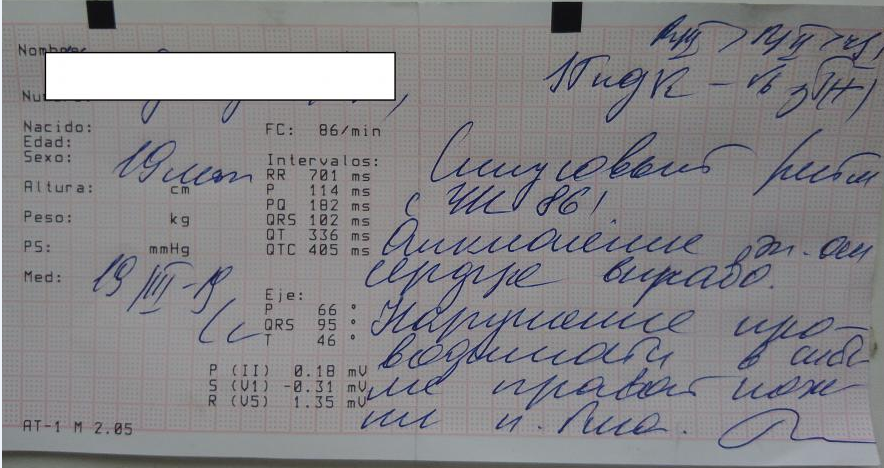 RIII > RII > RI
Nombre:
Nacido:
FC: 86/min
Edad:
Sexo:
19 лет
Intervalos:
RR 701 ms
Синусовый ритм
Altura: cm
P 114 ms
PQ 182 ms
с ЧСС 86!
Peso: kg
QRS 102 ms
QT 336 ms
Отклонение эл. оси
PS: mmHg
QTC 405 ms
сердца вправо.
Med:
19/III-19
Eje:
P 66 °
Нарушение про-
QRS 95 °
T 46 °
водимости в систе
P (II) 0.18 mV
S (V1) -0.31 mV
ме правой нож-
R (V5) 1.35 mV
ки п. Гиса.
AT-1 M 2.05